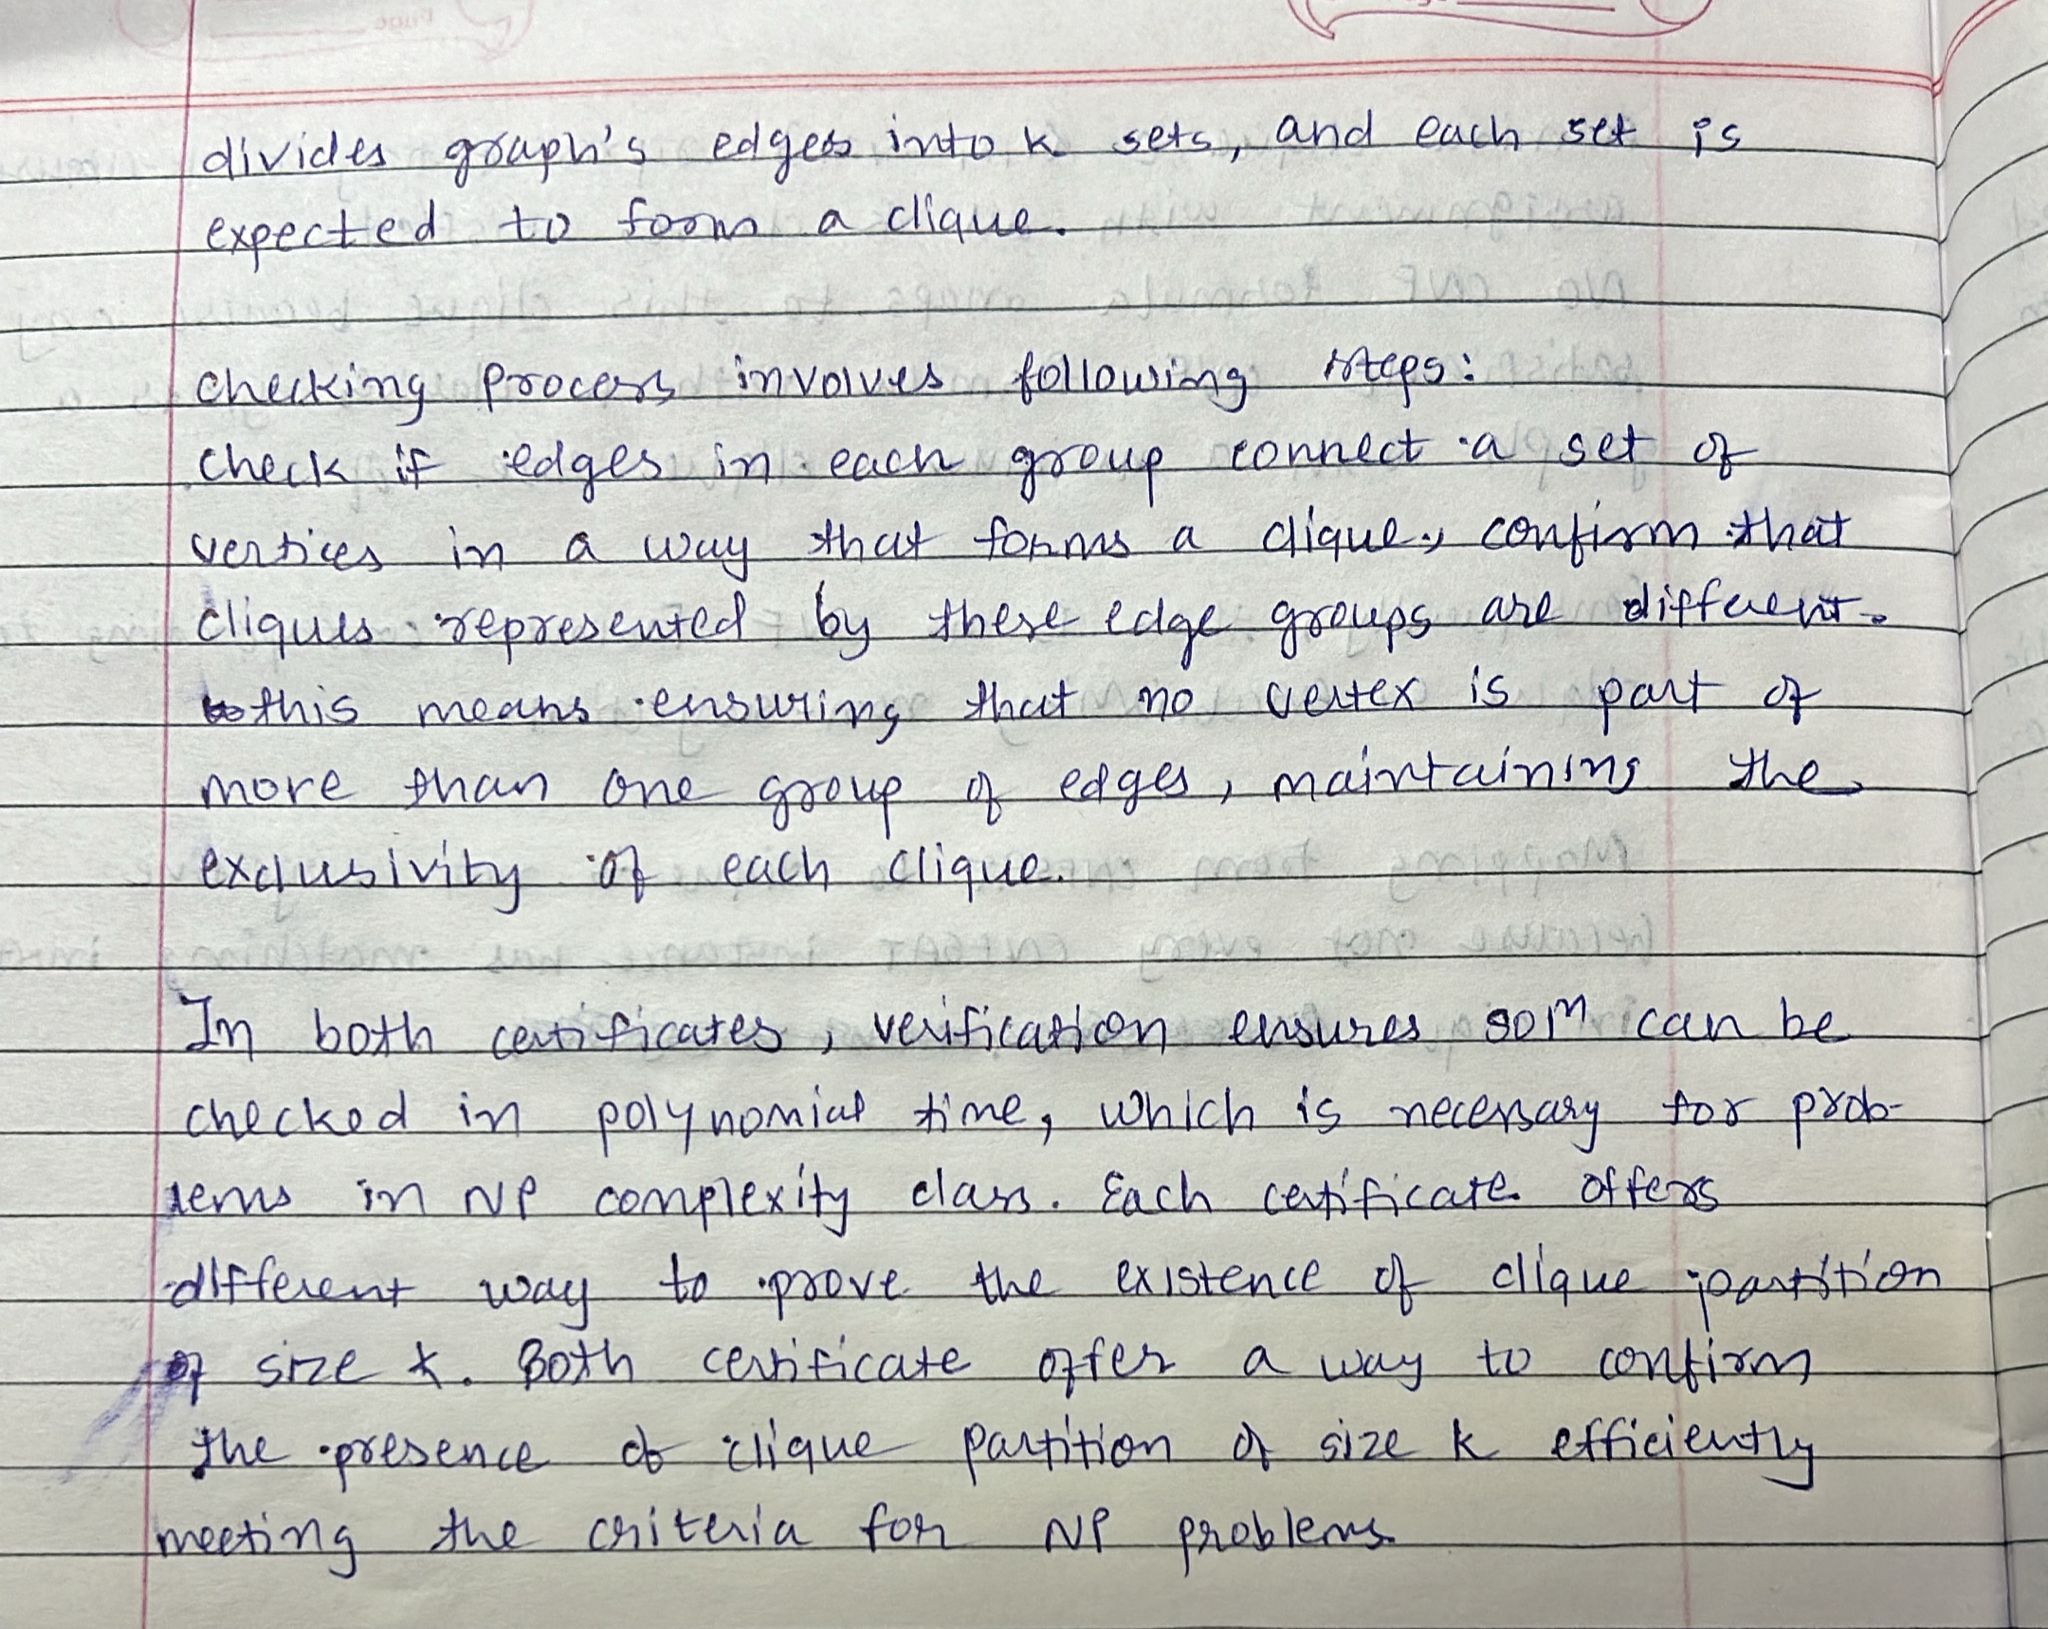 divides graph's edges into k sets, and each set is
expected to form a clique.
checking process involves following steps:
check if edges in each group connect a set of
vertices in a way that forms a clique, confirm that
cliques represented by these edge groups are different.
this means ensuring that no vertex is part of
more than one group of edges, maintaining the
exclusivity of each clique.
In both certificates, verification ensures solⁿ can be
checked in polynomial time, which is necessary for prob-
lems in NP complexity class. Each certificate offers
different way to prove the existence of clique partition
of size k. Both certificate offer a way to confirm
the presence of clique partition of size k efficiently
meeting the criteria for NP problems.